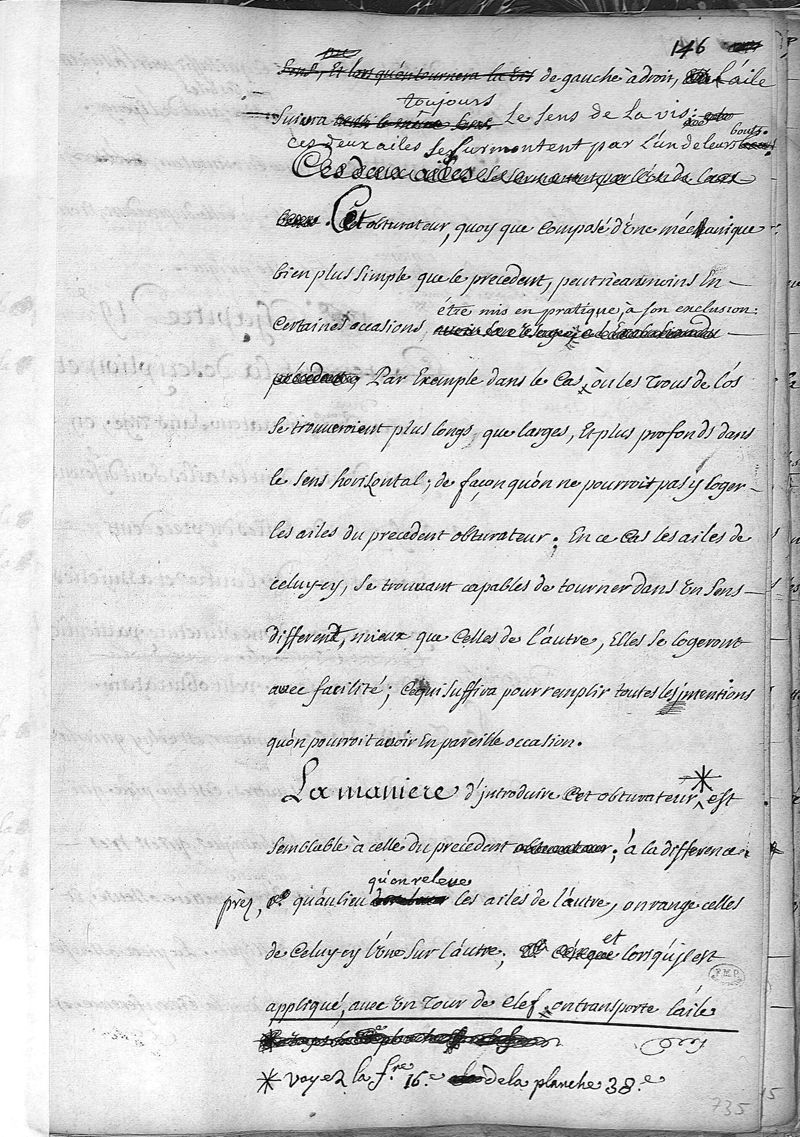 146
de gauche à droit, l'aile
toujours
Suivra le Sens de la vis;
bouts.
ces deux ailes se surmontent par l'un de leurs
Ces deux ailes se surmontent par l'un de leurs
Cet obturateur, quoy que composé d'une méchanique
bien plus simple que le precedent, peut neanmoins En
étre mis en pratique, à son exclusion:
certaines occasions,
precedent, Par Exemple dans le Cas, où les Trous de l'os
se trouveroient plus longs, que larges, Et plus profonds dans
le Sens horizontal; de façon qu'on ne pourroit pas y loger
les ailes du precedent obturateur. En ce Cas les ailes de
celuy-cy, se trouvant capables de tourner dans un Sens
different, mieux que Celles de l'autre, Elles se logeront
avec facilité; ce qui suffira pour remplir toutes les intentions
qu'on pourroit avoir En pareille occasion.
La maniere d'introduire Cet obturateur * est
Semblable à celle du precedent obturateur, à la difference
qu'on releve
prèz, qu'au lieu les ailes de l'autre, on range celles
et
de Celuy-cy l'une sur l'autre, lorsqu'il est
appliqué, avec un Tour de Clef, on transporte l'aile
* voyez la f.re 16.e de la planche 38.e
735